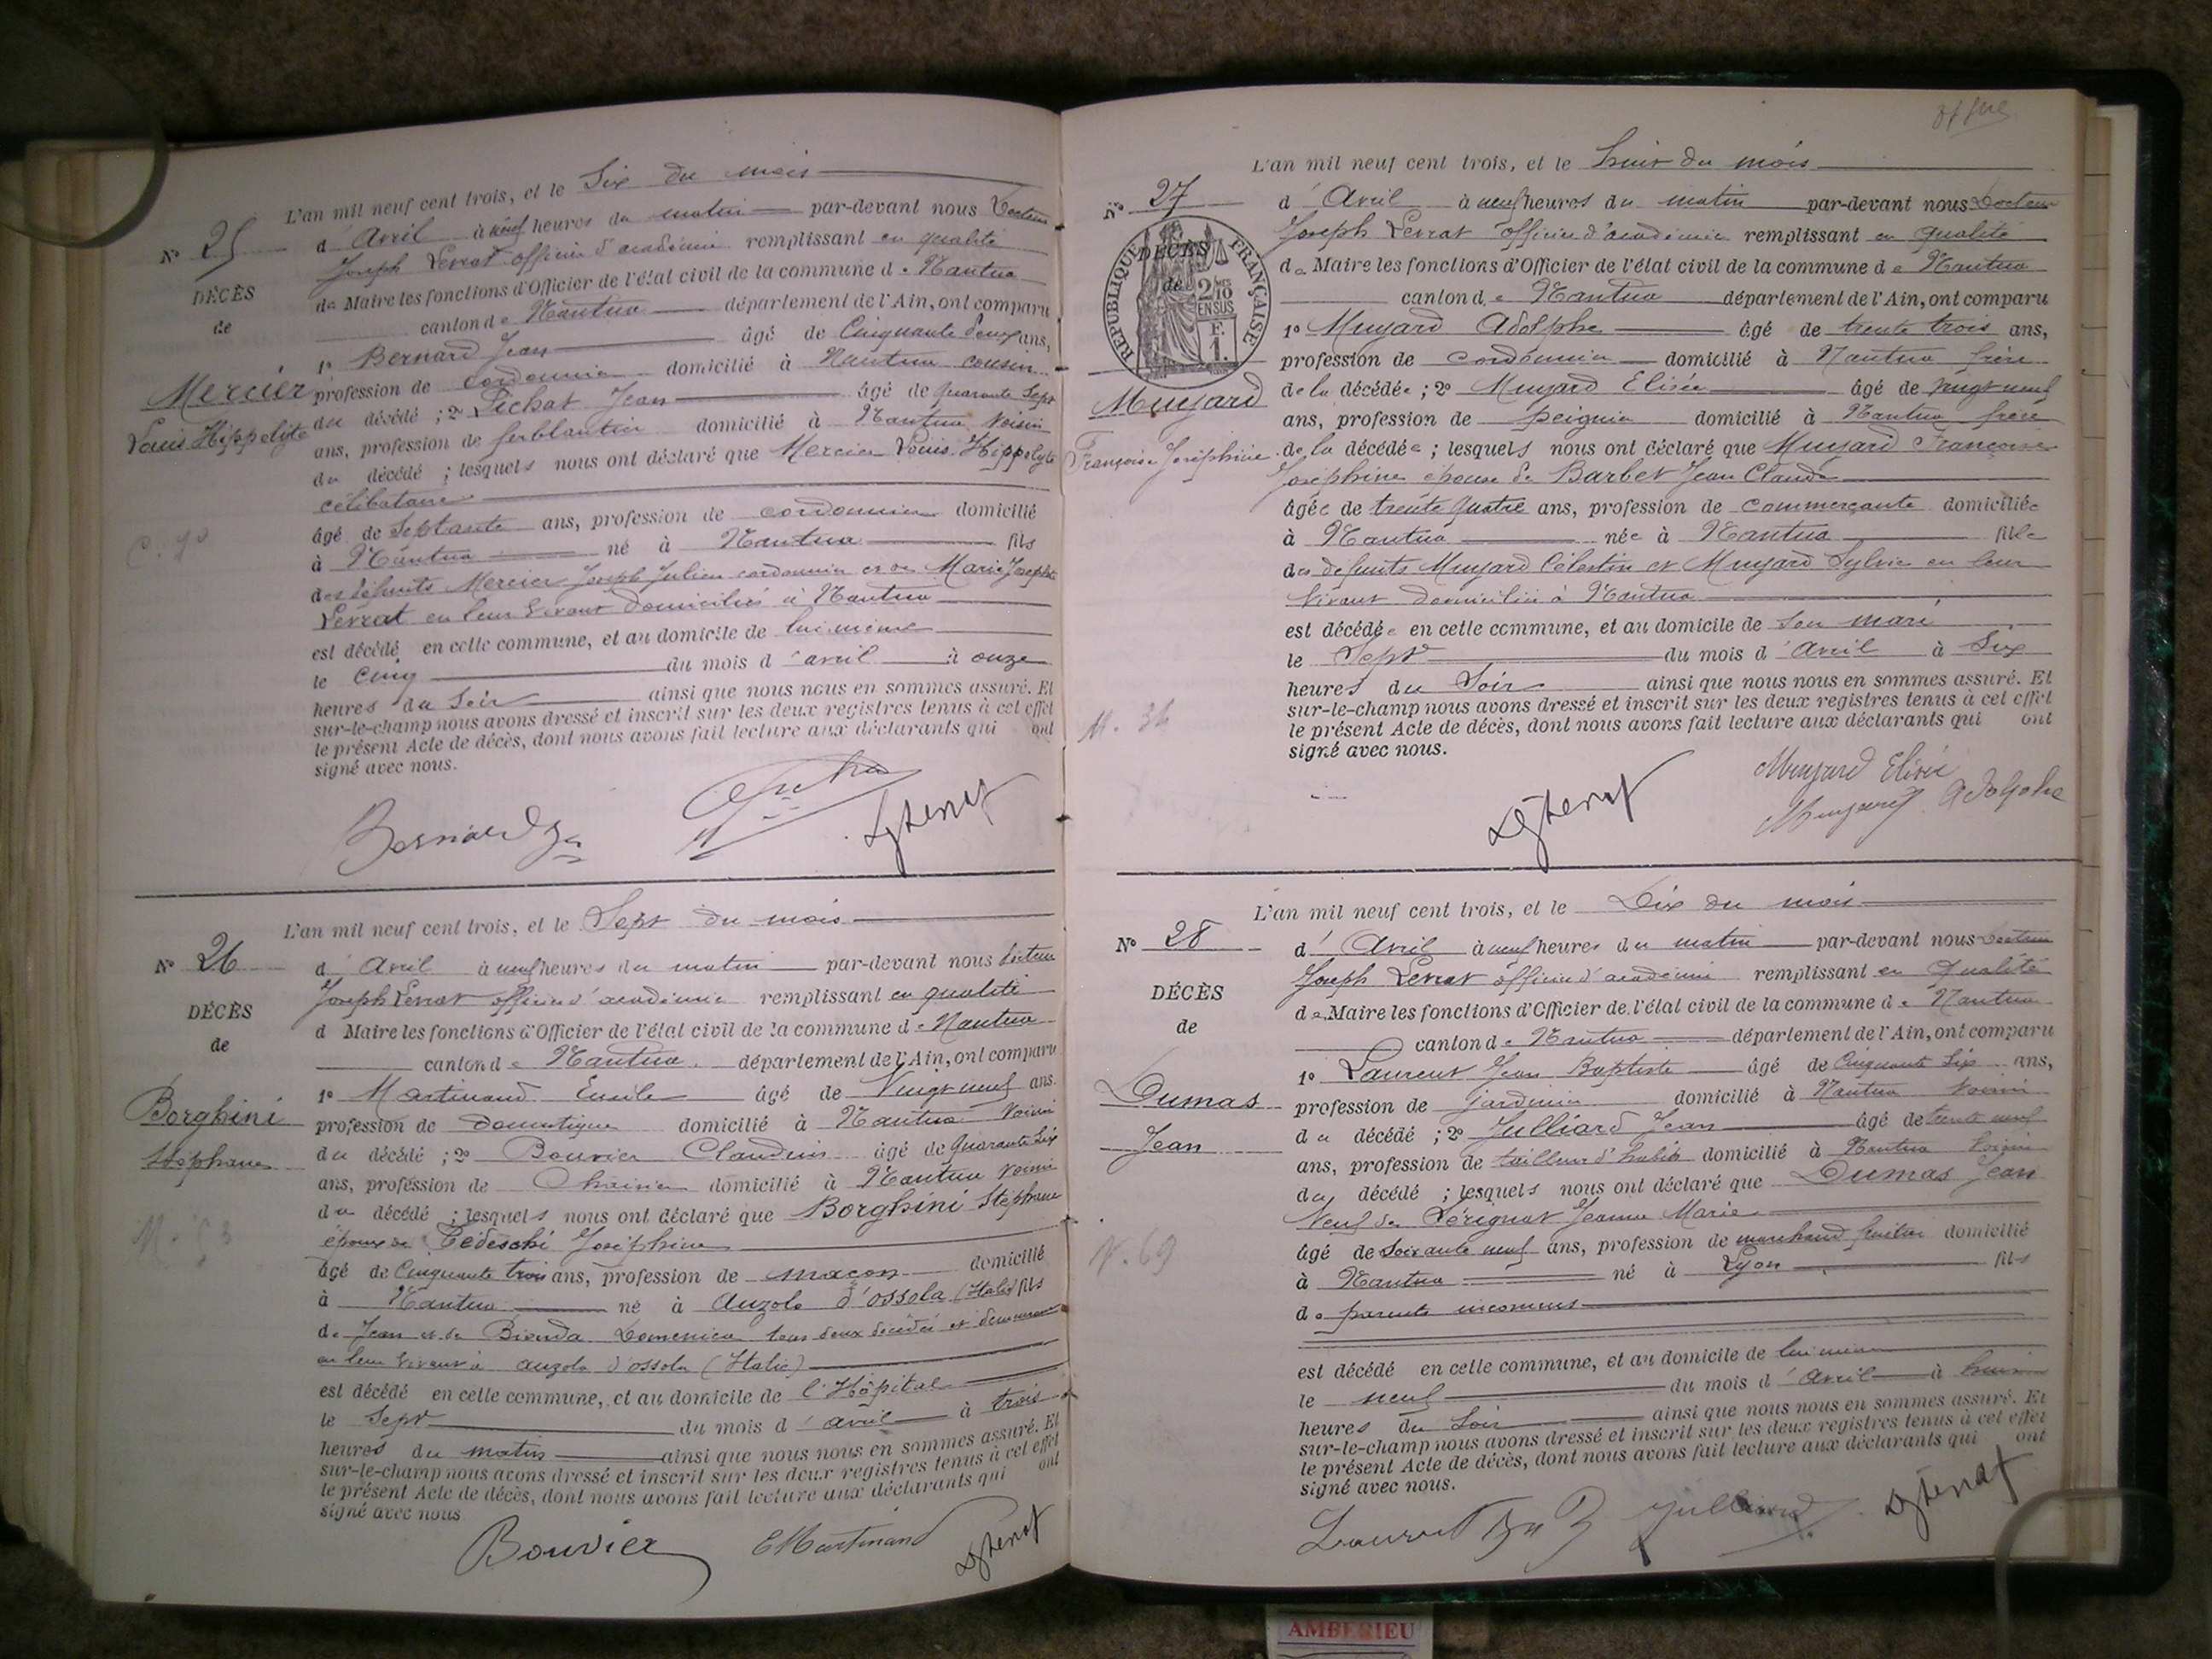 L'an mil neuf cent trois, et le Six du mois
N° 25
d'Avril à neuf heures du matin par-devant nous Docteur
Joseph Levrat officier d'académie remplissant en qualité
DÉCÈS
de Maire les fonctions d'Officier de l'état civil de la commune de Nantua
de
canton de Nantua département de l'Ain, ont comparu
1° Bernard Jean âgé de Cinquante deux ans,
Mercier
profession de cordonnier domicilié à Nantua cousin
du décédé ; 2° Jean âgé de quarante Sept
Louis Hippolyte
ans, profession de ferblantier domicilié à Nantua Voisin
du décédé ; lesquels nous ont déclaré que Mercier Louis Hippolyte
célibataire
âgé de Septante ans, profession de cordonnier domicilié
à Nantua né à Nantua fils
des défunts Mercier Joseph Julien cordonnier et de Marie Josephte
Levrat en leur vivant domiciliés à Nantua
est décédé en cette commune, et au domicile de lui même
le Cinq du mois d'avril à onze
heures du Soir ainsi que nous nous en sommes assuré. Et
sur-le-champ nous avons dressé et inscrit sur les deux registres tenus à cet effet
le présent Acte de décès, dont nous avons fait lecture aux déclarants qui ont
signé avec nous.
Bernard
L'an mil neuf cent trois, et le Sept du mois
N° 26
d'Avril à neuf heures du matin par-devant nous Docteur
Joseph Levrat officier d'académie remplissant en qualité
DÉCÈS
d Maire les fonctions d'Officier de l'état civil de la commune de Nantua
de
canton de Nantua département de l'Ain, ont comparu
1° Martinand Émile âgé de Vingt neuf ans.
Borghini
profession de domestique domicilié à Nantua Voisin
du décédé ; 2° Bouvier Claudius âgé de quarante Six
Stéphane
ans, profession de Chaisier domicilié à Nantua voisin
du décédé ; lesquels nous ont déclaré que Borghini Stéphane
époux de Tedeschi Joséphine
âgé de Cinquante trois ans, profession de maçon domicilié
à Nantua né à Anzola d'ossola (Italie) fils
de Jean et de Bionda Domenica tous deux décédés et demeurant
en leur vivant à anzola d'ossola (Italie)
est décédé en cette commune, et au domicile de l'Hôpital
le Sept du mois d'avril à trois
heures du matin ainsi que nous nous en sommes assuré. Et
sur-le-champ nous avons dressé et inscrit sur les deux registres tenus à cet effet
le présent Acte de décès, dont nous avons fait lecture aux déclarants qui ont
signé avec nous
Bouvier E Martinand
L'an mil neuf cent trois, et le huit du mois
N° 27
d'Avril à neuf heures du matin par-devant nous Docteur
Joseph Levrat officier d'académie remplissant en qualité
DÉCÈS
de
REPUBLIQUE FRANÇAISE
2/10 EN SUS
F. 1.
de Maire les fonctions d'Officier de l'état civil de la commune de Nantua
canton de Nantua département de l'Ain, ont comparu
1° Muyard Adolphe âgé de trente trois ans,
profession de cordonnier domicilié à Nantua frère
Muyard
de la décédée ; 2° Muyard Elisée âgé de vingt neuf
ans, profession de peignier domicilié à Nantua frère
Françoise Joséphine
de la décédée ; lesquels nous ont déclaré que Muyard Françoise
Joséphine épouse de Barbet Jean Claude
âgée de trente quatre ans, profession de commerçante domiciliée
à Nantua née à Nantua fille
des défunts Muyard Célestin et Muyard Sylvie en leur
vivant domiciliés à Nantua
est décédée en cette commune, et au domicile de son mari
le Sept du mois d'Avril à Six
heures du Soir ainsi que nous nous en sommes assuré. Et
sur-le-champ nous avons dressé et inscrit sur les deux registres tenus à cet effet
le présent Acte de décès, dont nous avons fait lecture aux déclarants qui ont
signé avec nous.
Muyard Elisée
Muyard Adolphe
L'an mil neuf cent trois, et le Dix du mois
N° 28
d'Avril à neuf heures du matin par-devant nous Docteur
Joseph Levrat officier d'académie remplissant en qualité
DÉCÈS
de Maire les fonctions d'Officier de l'état civil de la commune de Nantua
de
canton de Nantua département de l'Ain, ont comparu
1° Laurent Jean Baptiste âgé de Cinquante Six ans,
Dumas
profession de jardinier domicilié à Nantua voisin
du décédé ; 2° Julliard Jean âgé de trente neuf
Jean
ans, profession de tailleur d'habits domicilié à Nantua voisin
du décédé ; lesquels nous ont déclaré que Dumas Jean
Veuf de Pérignat Jeanne Marie
N. 69
âgé de Soixante neuf ans, profession de marchand fruitier domicilié
à Nantua né à Lyon fils
de parents inconnus
est décédé en cette commune, et au domicile de lui même
le neuf du mois d'Avril à huit
heures du Soir ainsi que nous nous en sommes assuré. Et
sur-le-champ nous avons dressé et inscrit sur les deux registres tenus à cet effet
le présent Acte de décès, dont nous avons fait lecture aux déclarants qui ont
signé avec nous.
Laurent Julliard
AMBERIEU